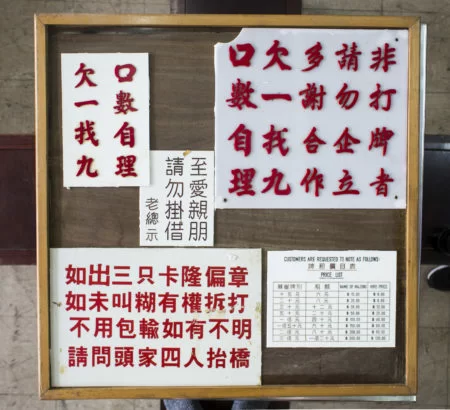 口數自理
欠一找九
非打牌者
請勿企立
多謝合作
欠一找九
口數自理
至愛親朋
請勿掛借
老總示
如出三只卡隆偏章
如未叫糊有權拆打
不用包輸如有不明
請問頭家四人抬橋
CUSTOMERS ARE REQUESTED TO NOTE AS FOLLOWS:
牌租價目表
PRICE LIST